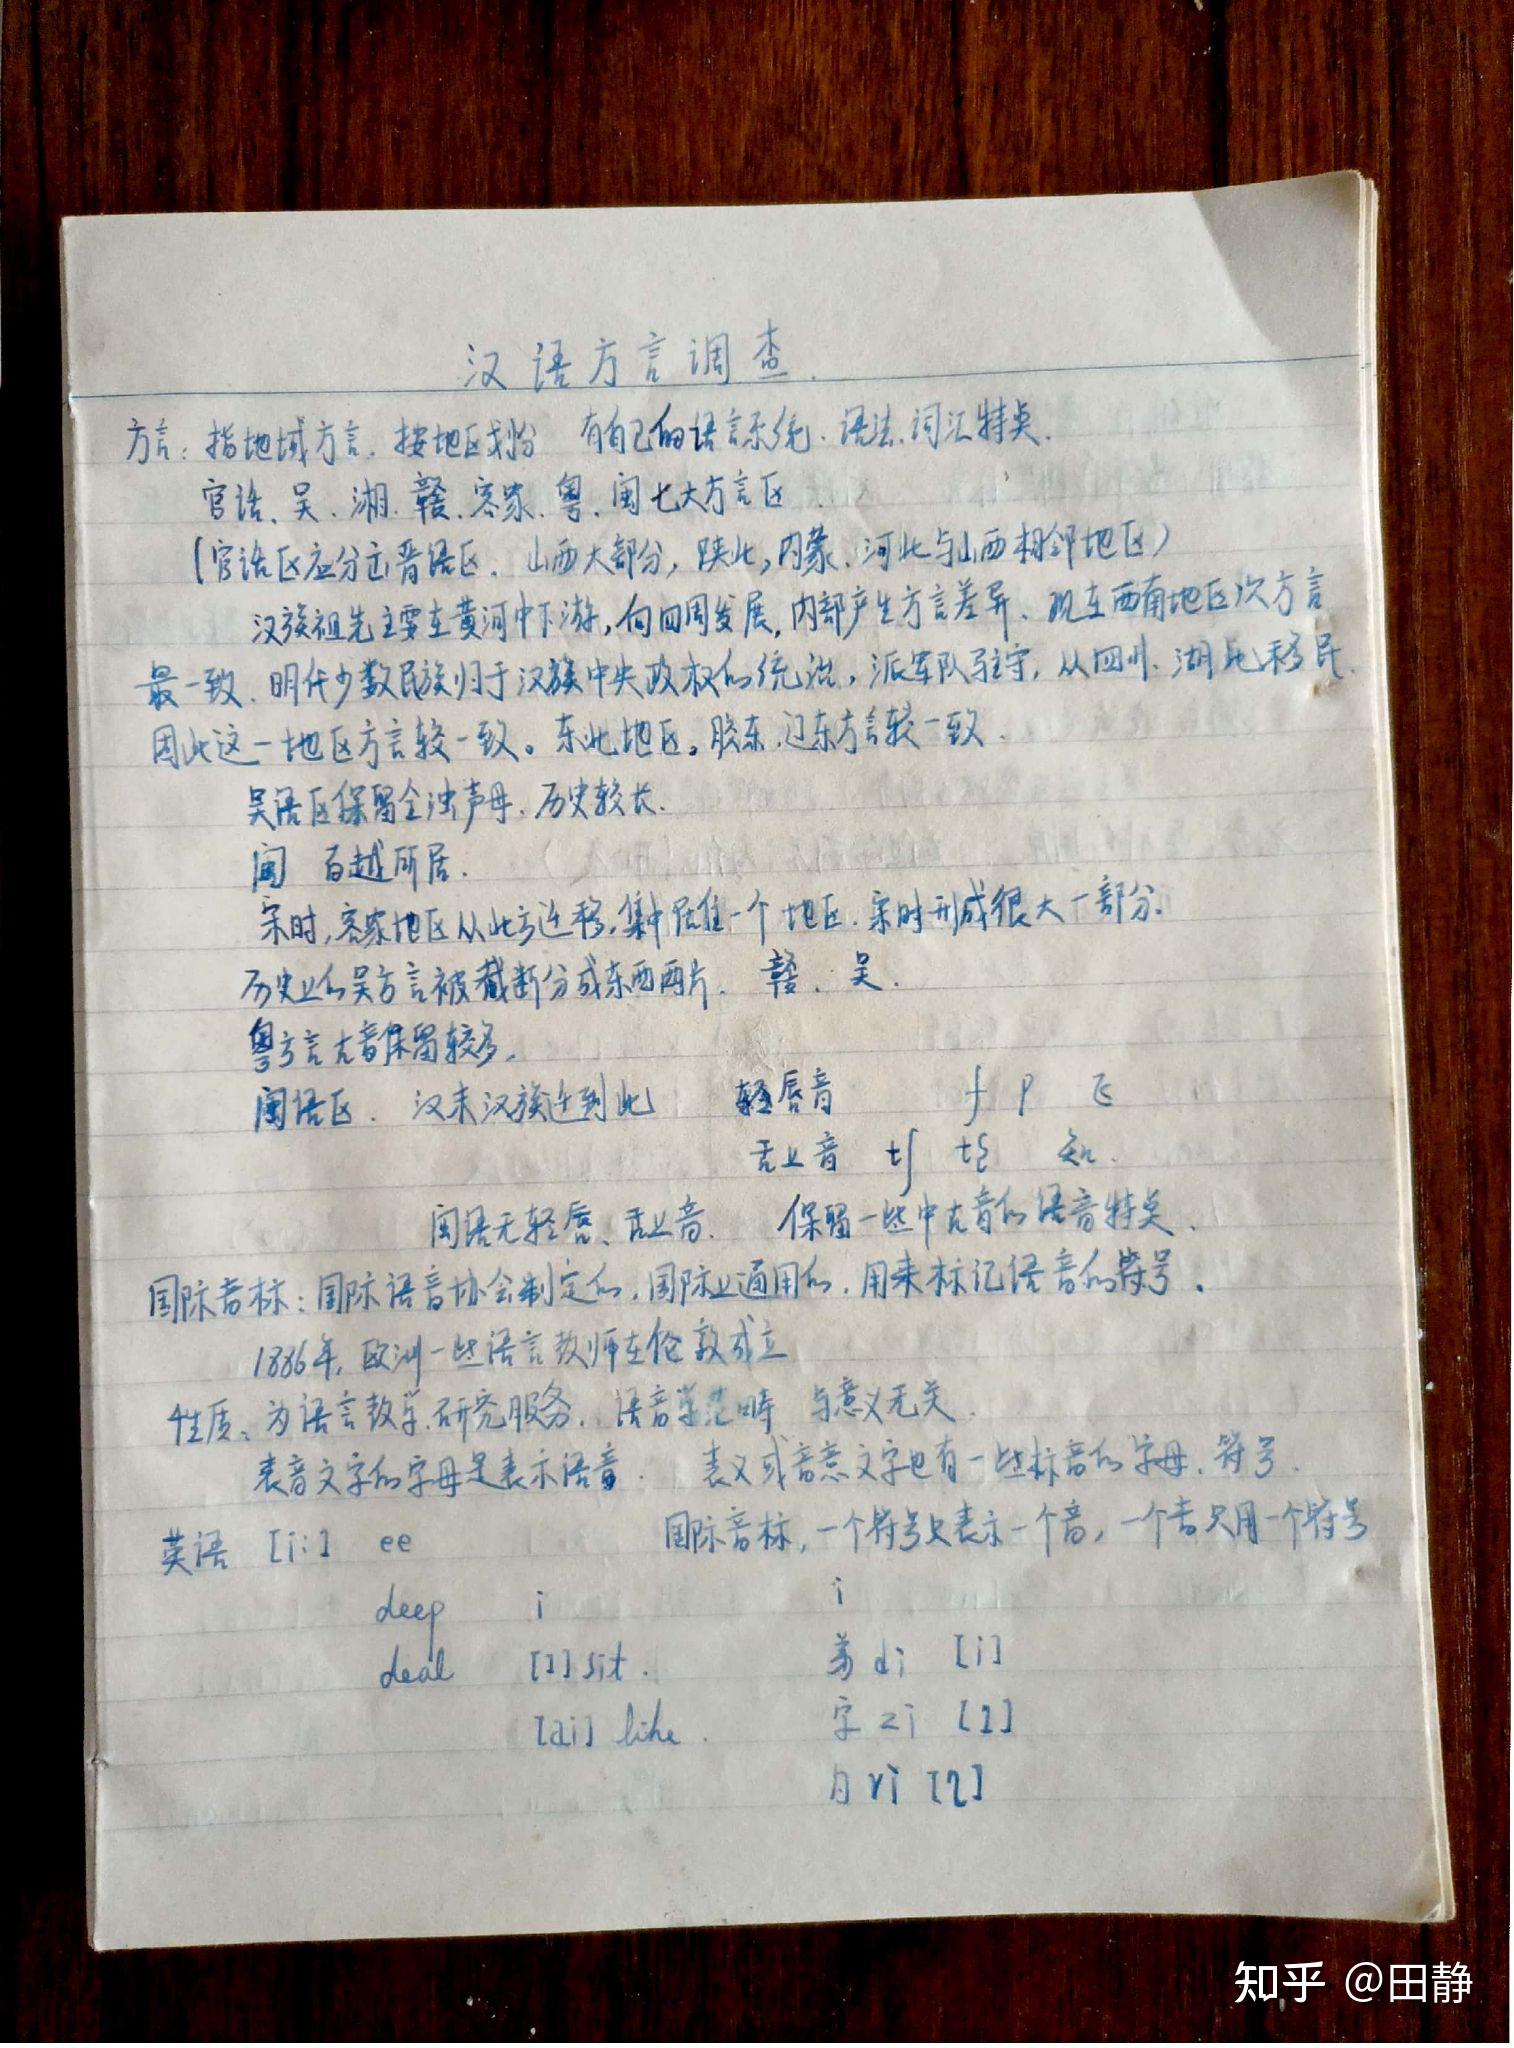 汉语方言调查.
方言：指地域方言.按地区划分 有自己的语言系统、语法、词汇特点.
官话、吴、湘、赣、客家、粤、闽七大方言区
(官话区应分出晋语区. 山西大部分，陕北，内蒙、河北与山西相邻地区)
汉族祖先主要在黄河中下游，向四周发展，内部产生方言差异、现在西南地区次方言
最一致、明代少数民族归于汉族中央政权的统治，派军队驻守，从四川、湖北移民.
因此这一地区方言较一致。东北地区。胶东、辽东方言较一致.
吴语区保留全浊声母、历史较长.
闽 百越所居.
宋时，客家地区从北方迁移，集中居住一个地区.宋时形成很大一部分.
历史上的吴方言被截断分成东西两片. 赣、吴.
粤方言古音保留较多.
闽语区. 汉末汉族迁到此 轻唇音 f p 飞
舌上音 tʃ tʂ 知.
闽语无轻唇、舌上音. 保留一些中古音的语音特点.
国际音标：国际语音协会制定的，国际上通用的，用来标记语音的符号.
1886年，欧洲一些语言教师在伦敦成立
性质：为语言教学、研究服务. 语音学范畴 与意义无关.
表音文字的字母是表示语音. 表义或音意文字也有一些标音的字母、符号.
英语 [i:] ee 国际音标，一个符号只表示一个音，一个音只用一个符号
deep i i
deal [ɪ] sit. 弟 di [i]
[ai] like. 字 zi [ɿ]
日 ri [ʅ]
知乎 @田静